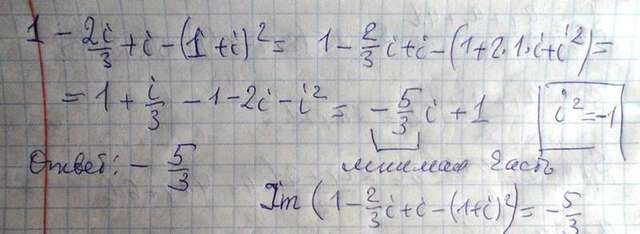 1 - 2i/3 + i - (1+i)² = 1 - 2/3 i + i - (1+2·1·i+i²) =
= 1 + i/3 - 1 - 2i - i² = - 5/3 i + 1   i² = -1
Ответ: - 5/3   мнимая часть
Im (1 - 2/3 i + i - (1+i)²) = - 5/3